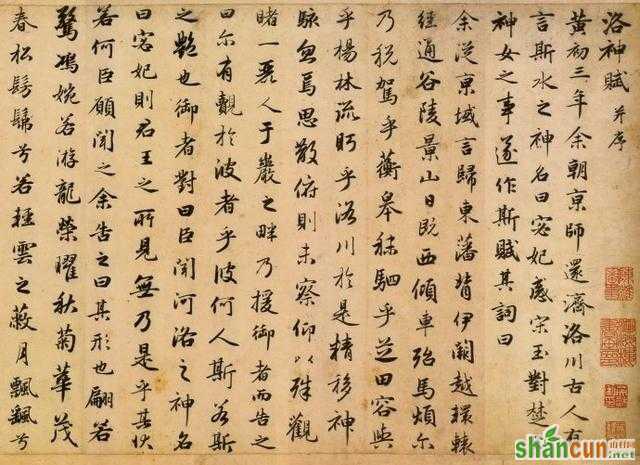 洛神賦 并序
黃初三年余朝京師還濟洛川古人有
言斯水之神名曰宓妃感宋玉對楚
神女之事遂作斯賦其詞曰
余從京域言歸東藩背伊闕越轘轅
經通谷陵景山日既西傾車殆馬煩尔
乃稅駕乎蘅皋秣駟乎芝田容與
乎楊林流眄乎洛川於是精移神
駭忽焉思散俯則未察仰以殊觀
睹一麗人于巖之畔乃援御者而告之
曰尔有覿於彼者乎彼何人斯若斯
之艷也御者對曰臣聞河洛之神名
曰宓妃則君王之所見無乃是乎其狀
若何臣願聞之余告之曰其形也翩若
驚鴻婉若游龍榮曜秋菊華茂
春松髣髴兮若輕雲之蔽月飄颻兮
shancun
.net